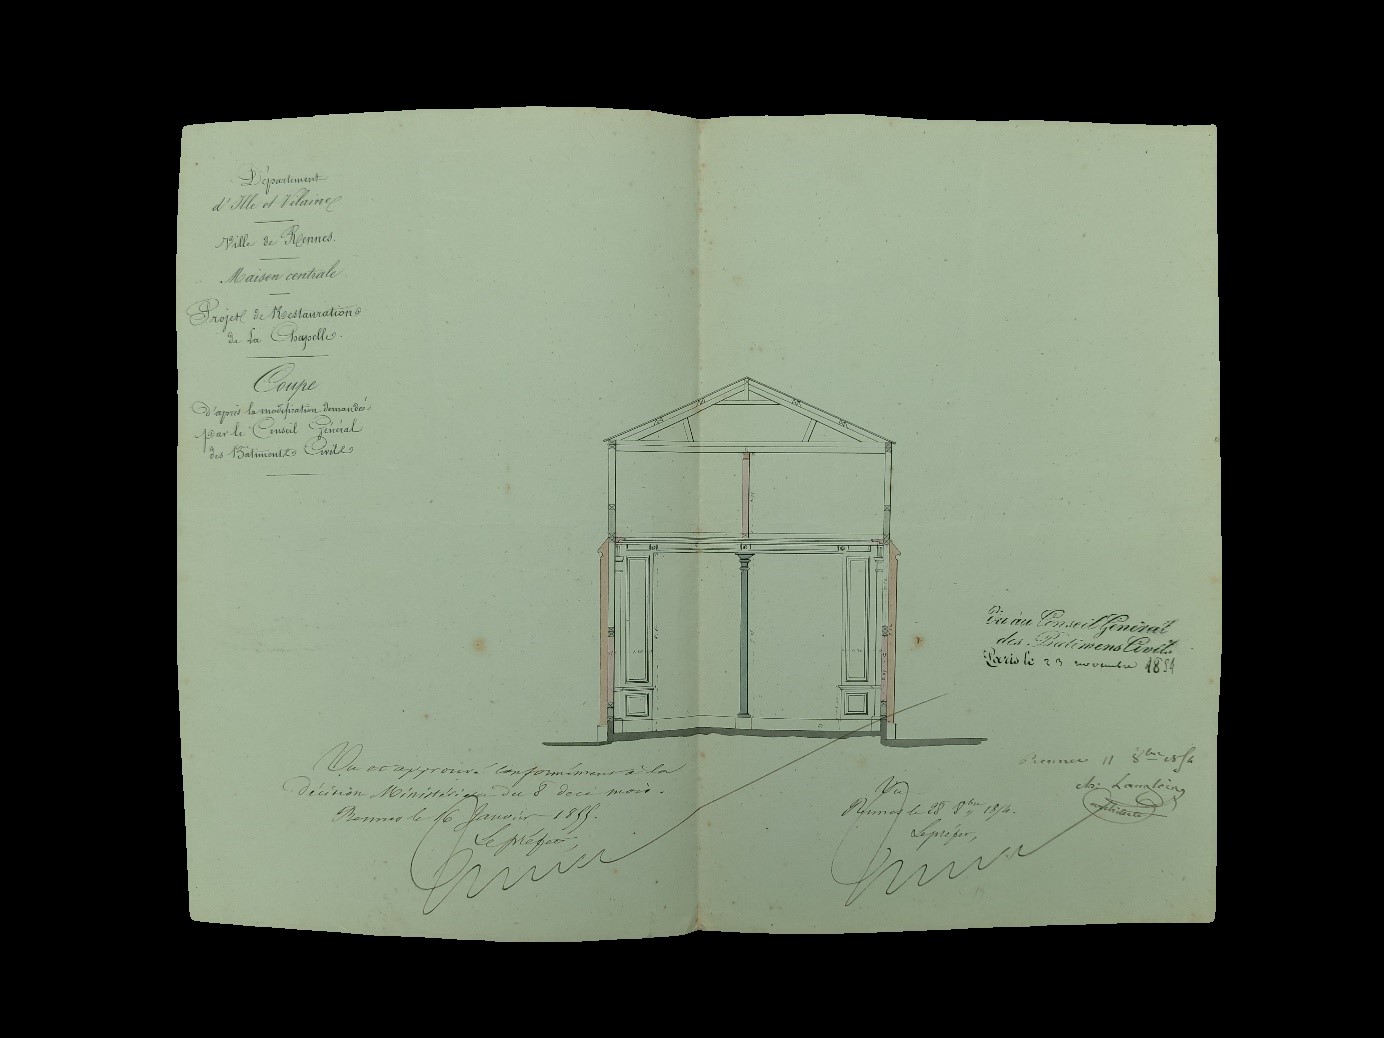 Département
d'Ille et Vilaine
Ville de Rennes.
Maison centrale
Projet de Restauration
de la Chapelle.
Coupe
d'après la modification demandée
par le Conseil Général
des Batiments Civils
Vu au Conseil Général
des Batimens Civils
Paris le 23 novembre 1854
Rennes 11 8bre 1854
architecte
Vu
Rennes le 28 8bre 1854.
Le préfet,
Vu et approuvé conformément à la
décision Ministérielle du 8 de ce mois.
Rennes le 16 Janvier 1855.
Le préfet,